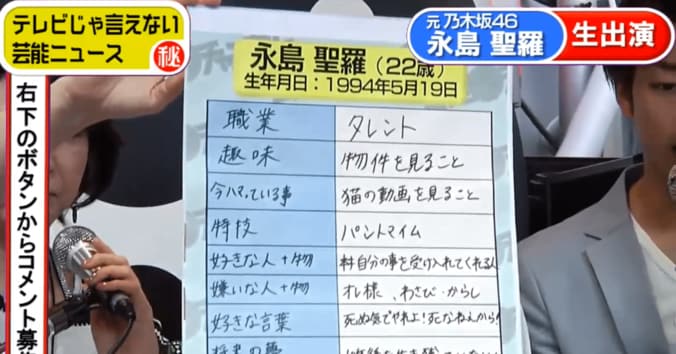 テレビじゃ言えない
芸能ニュース ㊙
元 乃木坂46
永島 聖羅
生出演
右下のボタンからコメント募
永島 聖羅(22歳)
生年月日:1994年5月19日
職業 タレント
趣味 物件を見ること
今ハマっている事 猫の動画を見ること
特技 パントマイム
好きな人+物 自分の事を受け入れてくれる人
嫌いな人+物 オレ様、わさび・からし
好きな言葉 死ぬ気でやれよ!死なねぇから!